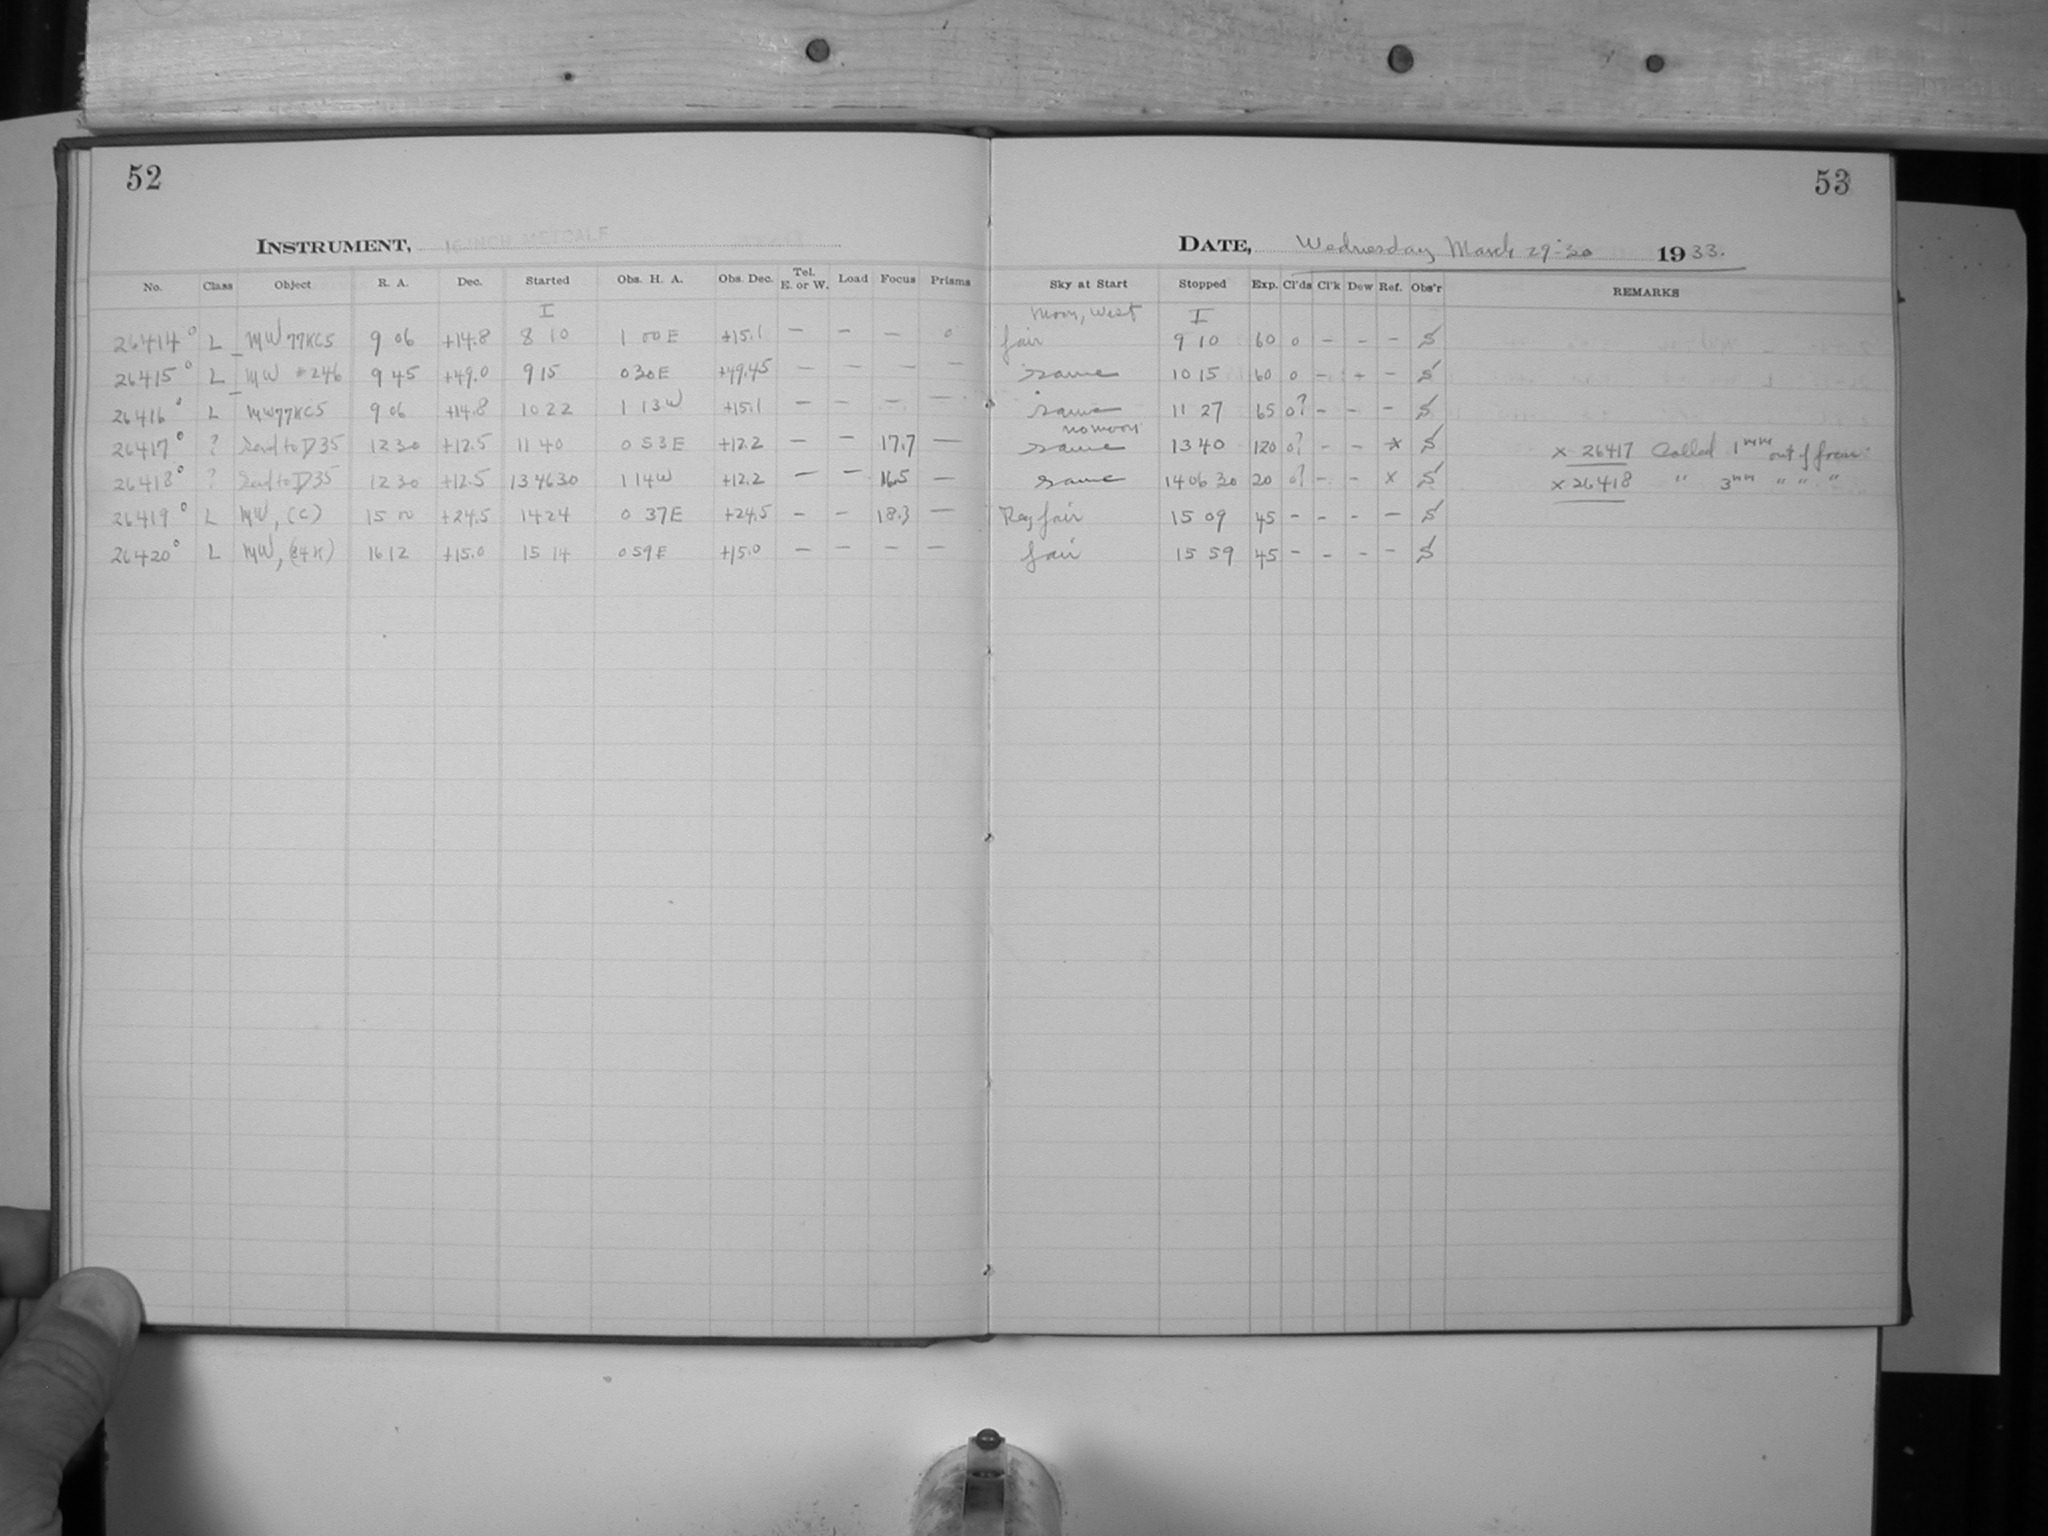 52
53
INSTRUMENT, 16-INCH METCALF
DATE, Wednesday March 29-30 1933.
No. Class Object R. A. Dec. Started Obs. H. A. Obs. Dec. Tel. E. or W. Load Focus Prisms Sky at Start Stopped Exp. Cl'ds Cl'k Dew Ref. Obs'r REMARKS
I Moon, West I
26414° L MW 77KC5 9 06 +14.8 8 10 1 00 E +15.1 — — — 0 fair 9 10 60 0 - - - S
26415° L MW #246 9 45 +49.0 9 15 0 30 E +49.45 — — — — same 10 15 60 0 - + - S
26416° L MW77KC5 9 06 +14.8 10 22 1 13 W +15.1 — — — — same 11 27 65 0? - - - S
no moon
26417° ? Send to D35 12 30 +12.5 11 40 0 53 E +12.2 — — 17.7 — same 13 40 120 0? - - x S x 26417 Called 1mm out of focus.
26418° ? Send to D35 12 30 +12.5 13 46 30 1 14 W +12.2 — — 16.5 — same 14 06 30 20 0? - - x S x 26418 " 3mm " " "
26419° L MW, (C) 15 00 +24.5 14 24 0 37 E +24.5 — — 18.3 — fair 15 09 45 - - - - S
26420° L MW, 16 12 +15.0 15 14 0 59 E +15.0 — — — — fair 15 59 45 - - - - S